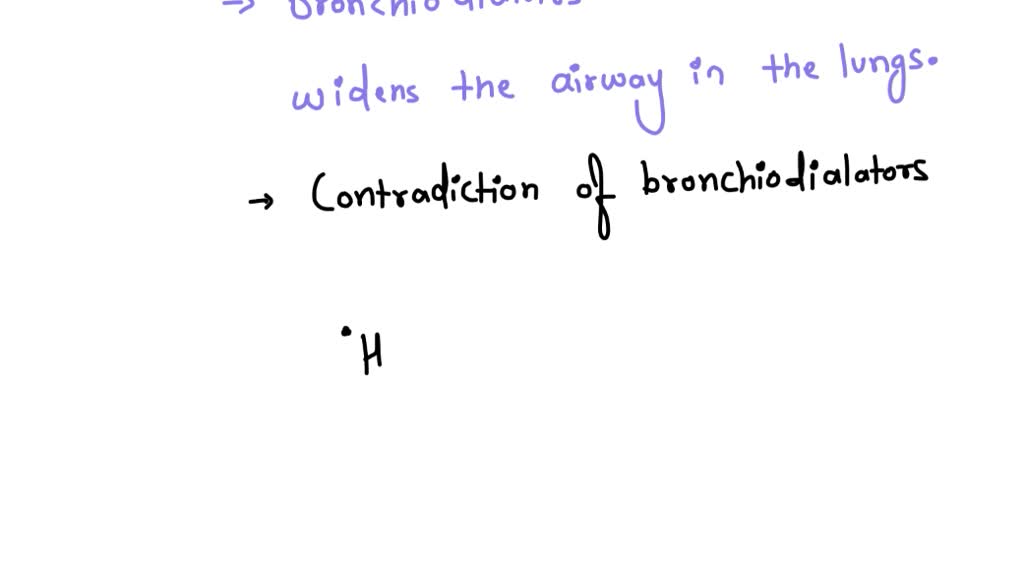 → Bronchiodialators
widens the airway in the lungs.
→ Contradiction of bronchiodialators
• H